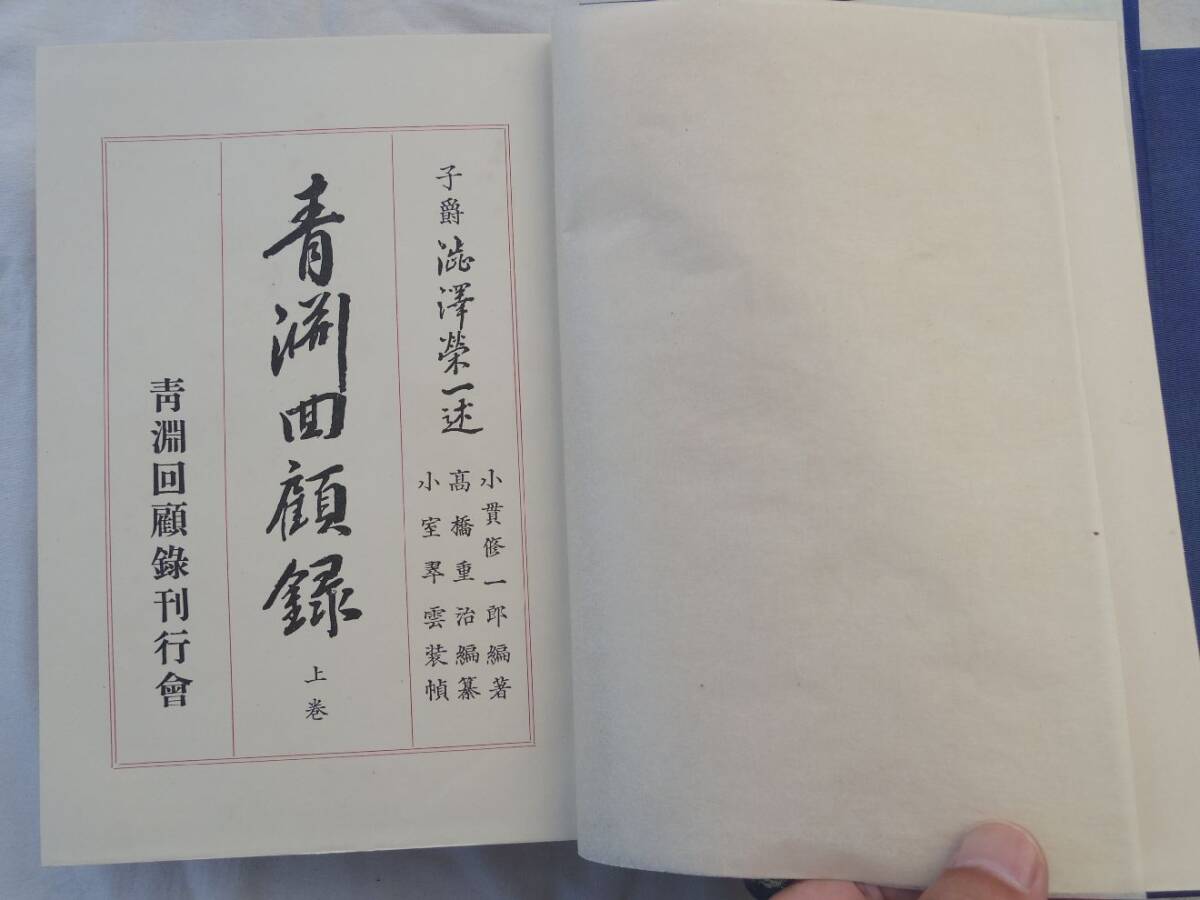 子爵澁澤榮一述
小貫修一郎編著
髙橋重治編纂
小室翠雲装幀
青淵回顧録
上巻
靑淵回顧錄刊行會